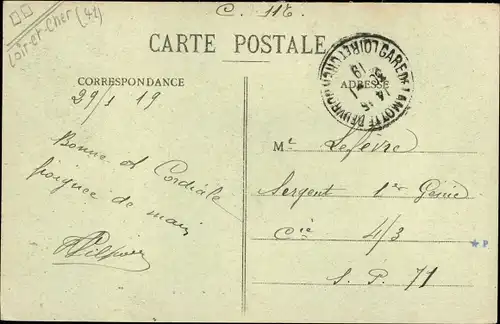 Loir-et-Cher (41)
C. 116
CARTE POSTALE
CORRESPONDANCE
ADRESSE
GARE DE LAMOTTE BEUVRON LOIR ET CHER
29/1 19
Bonne et Cordiale
poignee de main
Mr Lefèvre
Sergent 1er Génie
Cie 4/3
S. P. 71